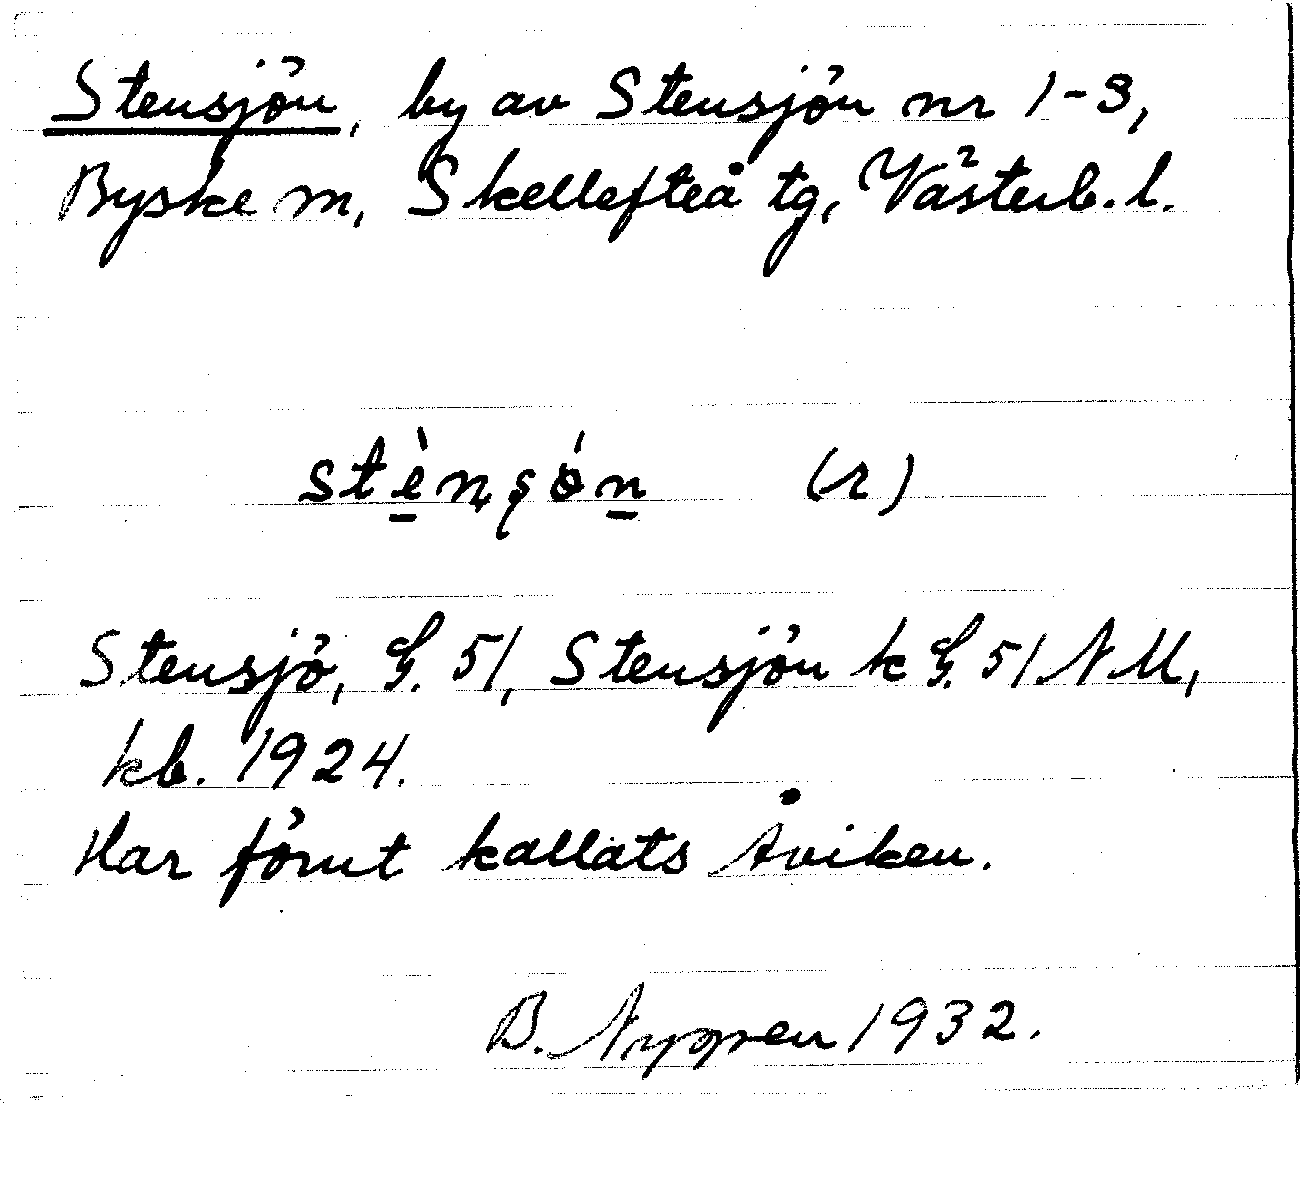 Stensjön, by av Stensjön nr 1-3,
Byske sn, Skellefteå tg, Västerb. l.
stè̱nşóṉ (r)
Stensjö, G. 51, Stensjön k G. 51 NM,
kb. 1924.
Har förut kallats Åviken.
B. Nyppen 1932.